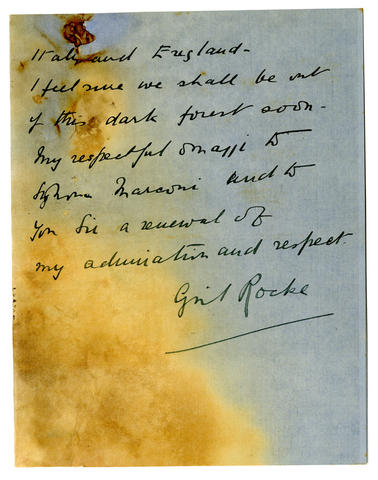 Italy and England -
I feel sure we shall be out
of this dark forest soon -
My respectful omaggi to
Signora Marconi and to
you Sir a renewal of
my admiration and respect.
Rocke